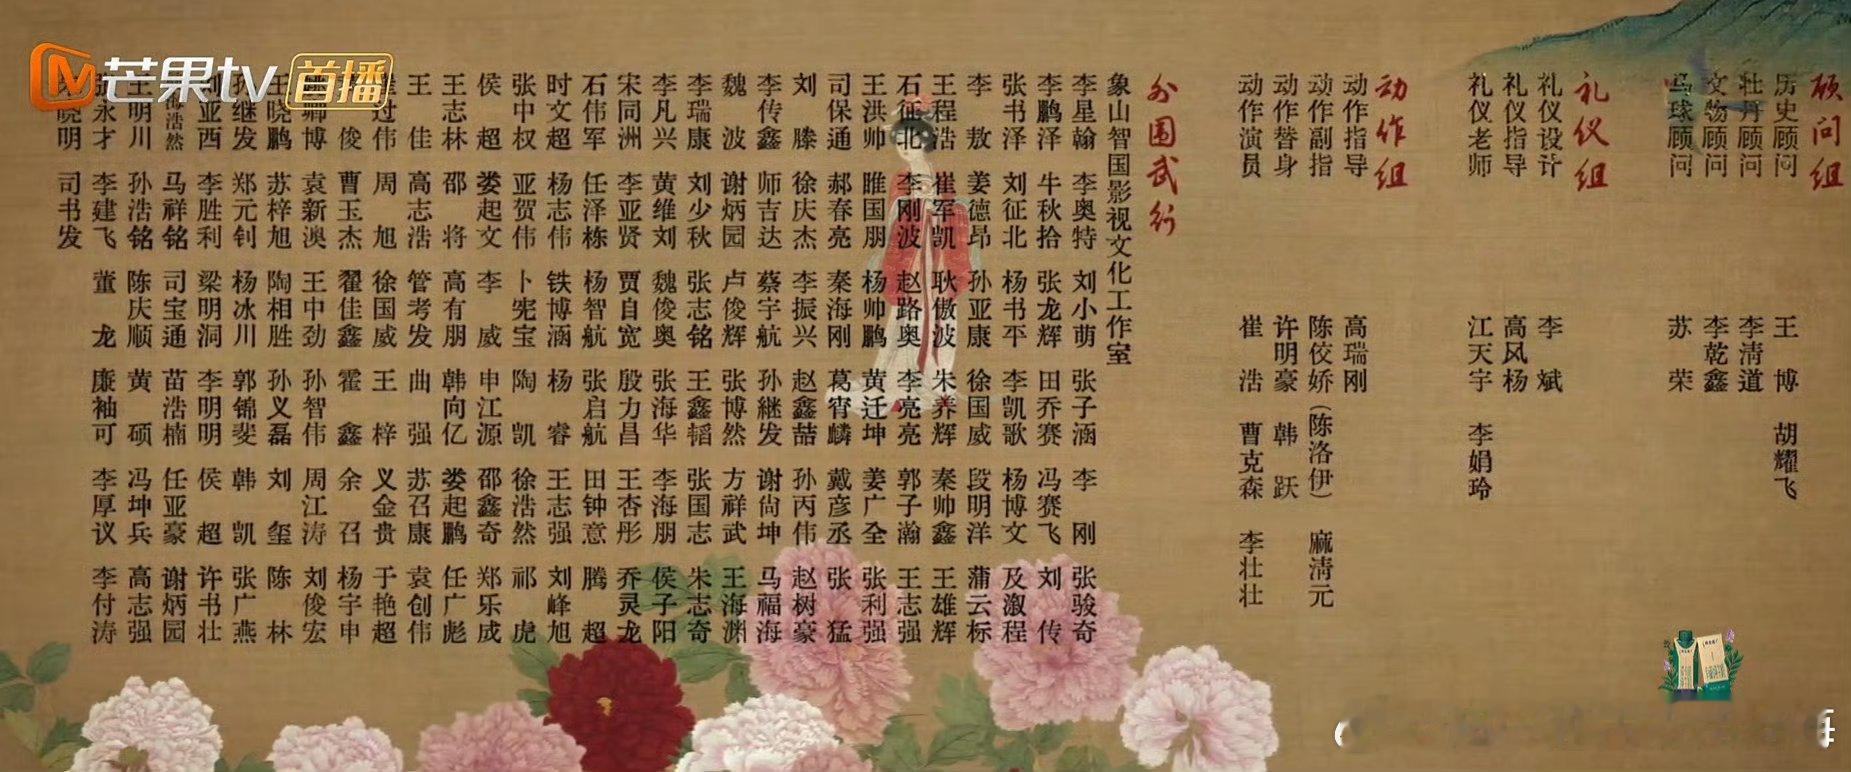 芒果tv 首播
顾问组
历史顾问 王博 胡耀飞
牡丹顾问 李清道
文物顾问 李乾鑫
马球顾问 苏荣
礼仪组
礼仪设计 李斌
礼仪指导 高风杨
礼仪老师 江天宇 李娟玲
动作组
动作指导 高瑞刚
动作副指 陈佼娇(陈洛伊) 麻清元
动作替身 许明豪 韩跃
动作演员 崔浩 曹克森 李壮壮
外围武行
象山智国影视文化工作室
李星翰 李奥特 刘小萌 张子涵 李刚 张骏奇
李鹏泽 牛秋拾 张龙辉 田乔赛 冯赛飞 刘传
张书泽 刘征北 杨书平 李凯歌 杨博文 及溆程
李敖 姜德昂 孙亚康 徐国威 段明洋 蒲云标
王程浩 崔军凯 耿傲波 朱养辉 秦帅鑫 王雄辉
石征北 李刚波 赵路奥 李亮亮 郭子瀚 王志强
王洪帅 睢国朋 杨帅鹏 黄迁坤 姜广全 张利强
司保通 郝春亮 秦海刚 葛宵麟 戴彦丞 张猛
刘滕 徐庆杰 李振兴 赵鑫喆 孙丙伟 赵树豪
李传鑫 师吉达 蔡宇航 孙継发 谢尚坤 马福海
魏波 谢炳园 卢俊辉 张博然 方祥武 王海渊
李瑞康 刘少秋 张志铭 王鑫韬 张国志 朱志奇
李凡兴 黄维刘 魏俊奥 张海华 李海朋 侯子阳
宋同洲 李亚贤 贾自宽 殷力昌 王杏彤 乔灵龙
石伟军 任泽栋 杨智航 张启航 田钟意 腾超
时文超 杨志伟 铁博涵 杨睿 王志强 刘峰旭
张中权 亚贺伟 卜宪宝 陶凯 徐浩然 祁虎
侯超 娄起文 李威 申江源 邵鑫奇 郑乐成
王志林 邵将 高有朋 韩向亿 娄起鹏 任广彪
王佳 高志浩 管考发 曲强 苏召康 袁创伟
过伟 周旭 徐国威 王梓 义金贵 于艳超
俊 曹玉杰 翟佳鑫 霍鑫 余召 杨宇申
博 袁新澳 王中劲 孙智伟 周江涛 刘俊宏
王晓鹏 苏梓旭 陶相胜 孙义磊 刘玺 陈林
孙继发 郑元钊 杨冰川 郭锦斐 韩凯 张广燕
刘亚西 李胜利 梁明洞 李明明 侯超 许书壮
浩然 马祥铭 司宝通 苗浩楠 任亚豪 谢炳园
王明川 孙浩铭 陈庆顺 黄硕 冯坤兵 高志强
张永才 李建飞 董龙 廉袖可 李厚议 李付涛
晓明 司书发